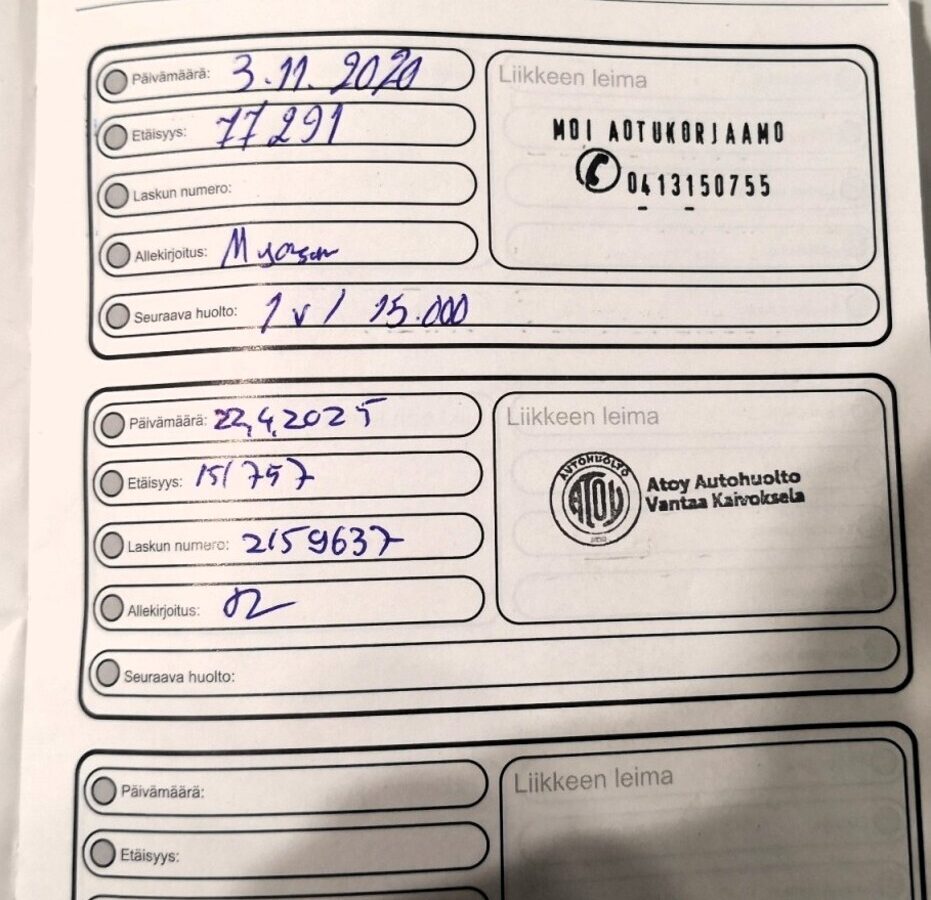 Päivämäärä: 3.11.2020
Etäisyys: 77 291
Laskun numero:
Allekirjoitus:
Seuraava huolto: 1 v / 15.000
Liikkeen leima
MOI AOTUKORJAAMO
0413150755
Päivämäärä: 22.4.2025
Etäisyys: 151757
Laskun numero: 2159637
Allekirjoitus:
Seuraava huolto:
Liikkeen leima
AUTOHUOLTO
ATOY
Atoy Autohuolto
Vantaa Kaivoksela
Päivämäärä:
Etäisyys:
Liikkeen leima